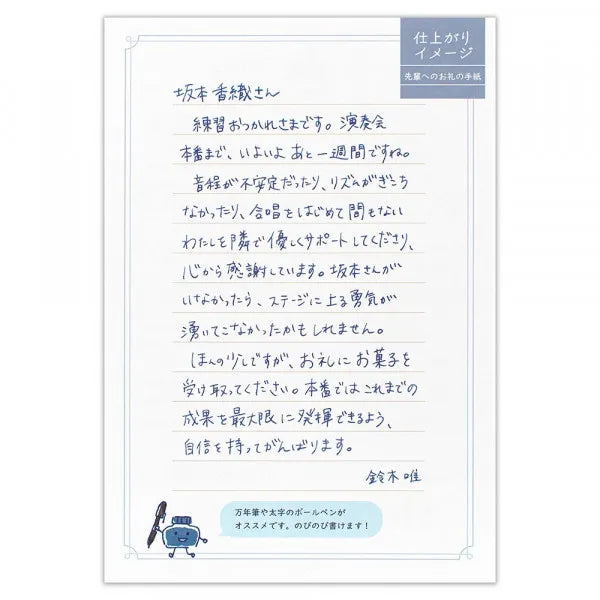 仕上がり
イメージ
先輩へのお礼の手紙
坂本 香織さん
練習おつかれさまです。演奏会
本番まで、いよいよ あと一週間ですね。
音程が不安定だったり、リズムがぎこち
なかったり、合唱をはじめて間もない
わたしを隣で優しくサポートしてくださり、
心から感謝しています。坂本さんが
いなかったら、ステージに上る勇気が
湧いてこなかったかもしれません。
ほんの少しですが、お礼にお菓子を
受け取ってください。本番ではこれまでの
成果を最大限に発揮できるよう、
自信を持ってがんばります。
鈴木 唯
万年筆や太字のボールペンが
オススメです。のびのび書けます!